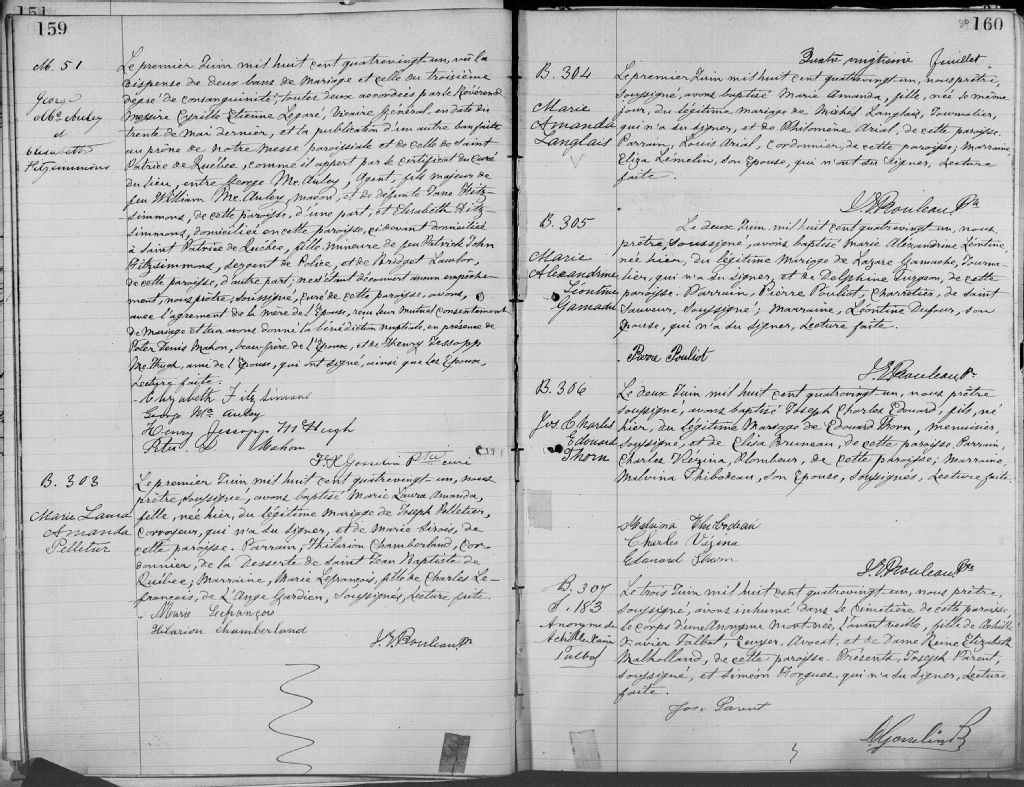 151
159
M. 51
George
Mc Auley
et
Elisabeth
Fitzsimmons
Le premier Juin mil huit cent quatrevingt un, vû la
dispense de deux bans de Mariage et celle du troisième
degré de consanguinité; toutes deux accordées par le Révérend
Messire Cyrille Etienne Legaré, Vicaire Général en date du
trente de Mai dernier, et la publication d'un autre ban faite
au prône de notre Messe paroissiale et de celle de Saint
Patrice de Québec, comme il appert par le certificat du curé
du lieu, entre George Mc Auley, Agent, fils majeur de
feu William Mc Auley, maçon, et de défunte Jane Fitz-
simmons, de cette paroisse, d'une part, et Elisabeth Fitz-
simmons, domiciliée en cette paroisse, ci devant domiciliée
à Saint Patrice de Québec, fille mineure de feu Patrick John
Fitzsimmons, sergent de Police, et de Bridget Lawlor,
de cette paroisse, d'autre part; n'ayant découvert aucun empêche-
ment, nous prêtre, soussigné, curé de cette paroisse, avons,
avec l'agrément de la mère de l'Epouse, reçu leur mutuel consentement
de Mariage et leur avons donné la bénédiction nuptiale, en présence de
Peter Denis Mahon, beau frère de l'Epoux, et de Henry Jessopp
Mc Hugh, ami de l'Epoux, qui ont signé, ainsi que les Epoux,
Lecture faite.
Elizabeth Fitzsimons
George Mc Auley
Henry Jessopp McHugh
Peter D. Mahon
F. X. Gosselin Ptre curé
B. 303
Marie Laura
Amanda
Pelletier
Le premier Juin mil huit cent quatrevingt un, nous
prêtre, soussigné, avons baptisé Marie Laura Amanda,
fille, née hier, du légitime mariage de Joseph Pelletier,
Corroyeur, qui n'a su signer, et de Marie Sirois, de
cette paroisse. Parrain, Hilarion Chamberland, Cor-
donnier, de la Desserte de Saint Jean Baptiste de
Québec; Marraine, Marie Lefrançois, fille de Charles Le-
françois, de L'Ange Gardien, soussignés, Lecture faite.
Marie Lefrançois
Hilarion Chamberland
J. E. Rouleau Ptr
160
Quatre vingtième feuillet
B. 304
Marie
Amanda
Langlais
Le premier Juin mil huit cent quatrevingt un, nous prêtre,
soussigné, avons baptisé Marie Amanda, fille, née le même
jour, du légitime mariage de Michel Langlais, Journalier,
qui n'a su signer, et de Philomène Arial, de cette paroisse.
Parrain, Louis Arial, Cordonnier, de cette paroisse; Marraine,
Eliza Lemelin, son Epouse, qui n'ont su signer, Lecture
faite.
J. E. Rouleau Ptr
B. 305
Marie
Alexandrine
Léontine
Gamache
Le deux Juin mil huit cent quatrevingt un, nous,
prêtre, soussigné, avons baptisé Marie Alexandrine Léontine,
née hier, du légitime Mariage de Lazare Gamache, Journa-
lier, qui n'a su signer, et de Delphine Turgeon, de cette
paroisse. Parrain, Pierre Pouliot, Charretier, de Saint
Sauveur, soussigné; Marraine, Léontine Dufour, son
Epouse, qui n'a su signer, Lecture faite.
Pierre Pouliot
J. E. Rouleau Ptr
B. 306
Jos. Charles
Edouard
Thorn
Le deux Juin mil huit cent quatrevingt un, nous prêtre
soussigné, avons baptisé Joseph Charles Edouard, fils, né
hier, du légitime Mariage de Edouard Thorn, menuisier,
soussigné, et de Elisa Bruneau, de cette paroisse. Parrain,
Charles Vézina, Plombeur, de cette paroisse; Marraine,
Malvina Thibodeau, son Epouse, soussignés, Lecture faite.
Malvina Thibodeau
Charles Vézina
Edouard Thorn
J. E. Rouleau Ptr
B. 307
S. 183
Anonyme de
Achille Xavier
Talbot
Le trois Juin mil huit cent quatrevingt un, nous prêtre,
soussigné, avons inhumé dans le cimetière de cette paroisse
le corps d'une Anonyme mort-née, l'avant veille, fille de Achille
Xavier Talbot, Ecuyer, Avocat, et de Dame Reine Elizabeth
Mulholland, de cette paroisse. Présents, Joseph Parent,
soussigné, et Siméon Forgues, qui n'a su signer, Lecture
faite.
Jos. Parent
Gosselin Ptr